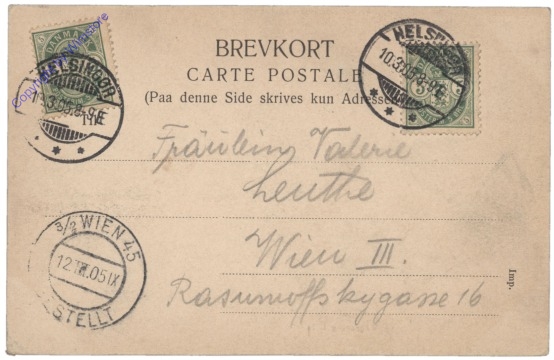 BREVKORT
CARTE POSTALE
(Paa denne Side skrives kun Adressen
DANMARK
HELSINGØR
HELSINGØR
10.3.05.8-9E
Fräulein Valerie
Leuthe
Wien III.
Rasumoffskygasse 16
3/2 WIEN 45
12.III.05 IX
BESTELLT
Imp.